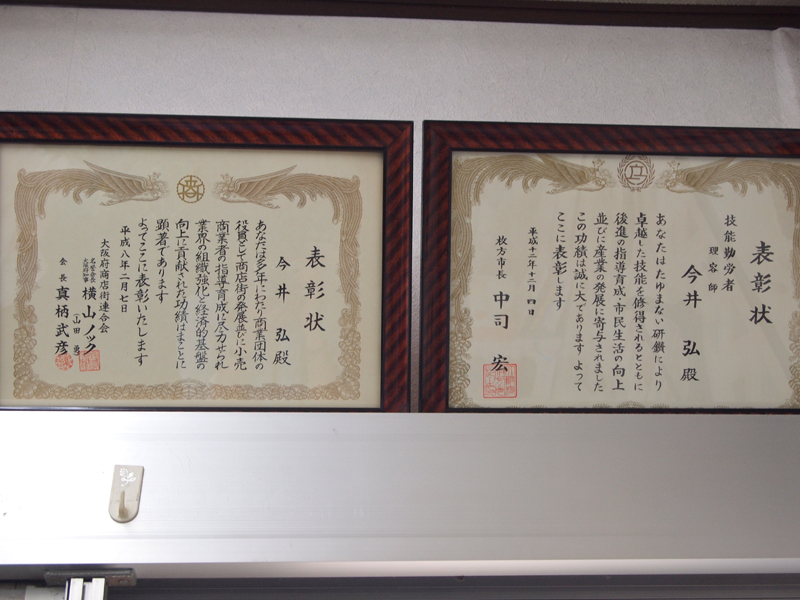 表彰状
今井 弘殿
あなたは多年にわたり商業団体の
役員として商店街の発展並びに小売
商業者の指導育成に尽力せられ
業界の組織強化と経済的基盤の
向上に貢献された功績はまことに
顕著であります
よってここに表彰いたします
平成八年二月七日
大阪府商店街連合会
名誉会長
大阪府知事
横山ノック
(山田勇)
会長 真柄武彦
商
表彰状
技能勤労者
理容師
今井 弘殿
あなたはたゆまない研鑽により
卓越した技能を修得されるとともに
後進の指導育成・市民生活の向上
並びに産業の発展に寄与されました
この功績は誠に大であります よって
ここに表彰します
平成十二年十二月四日
枚方市長 中司 宏